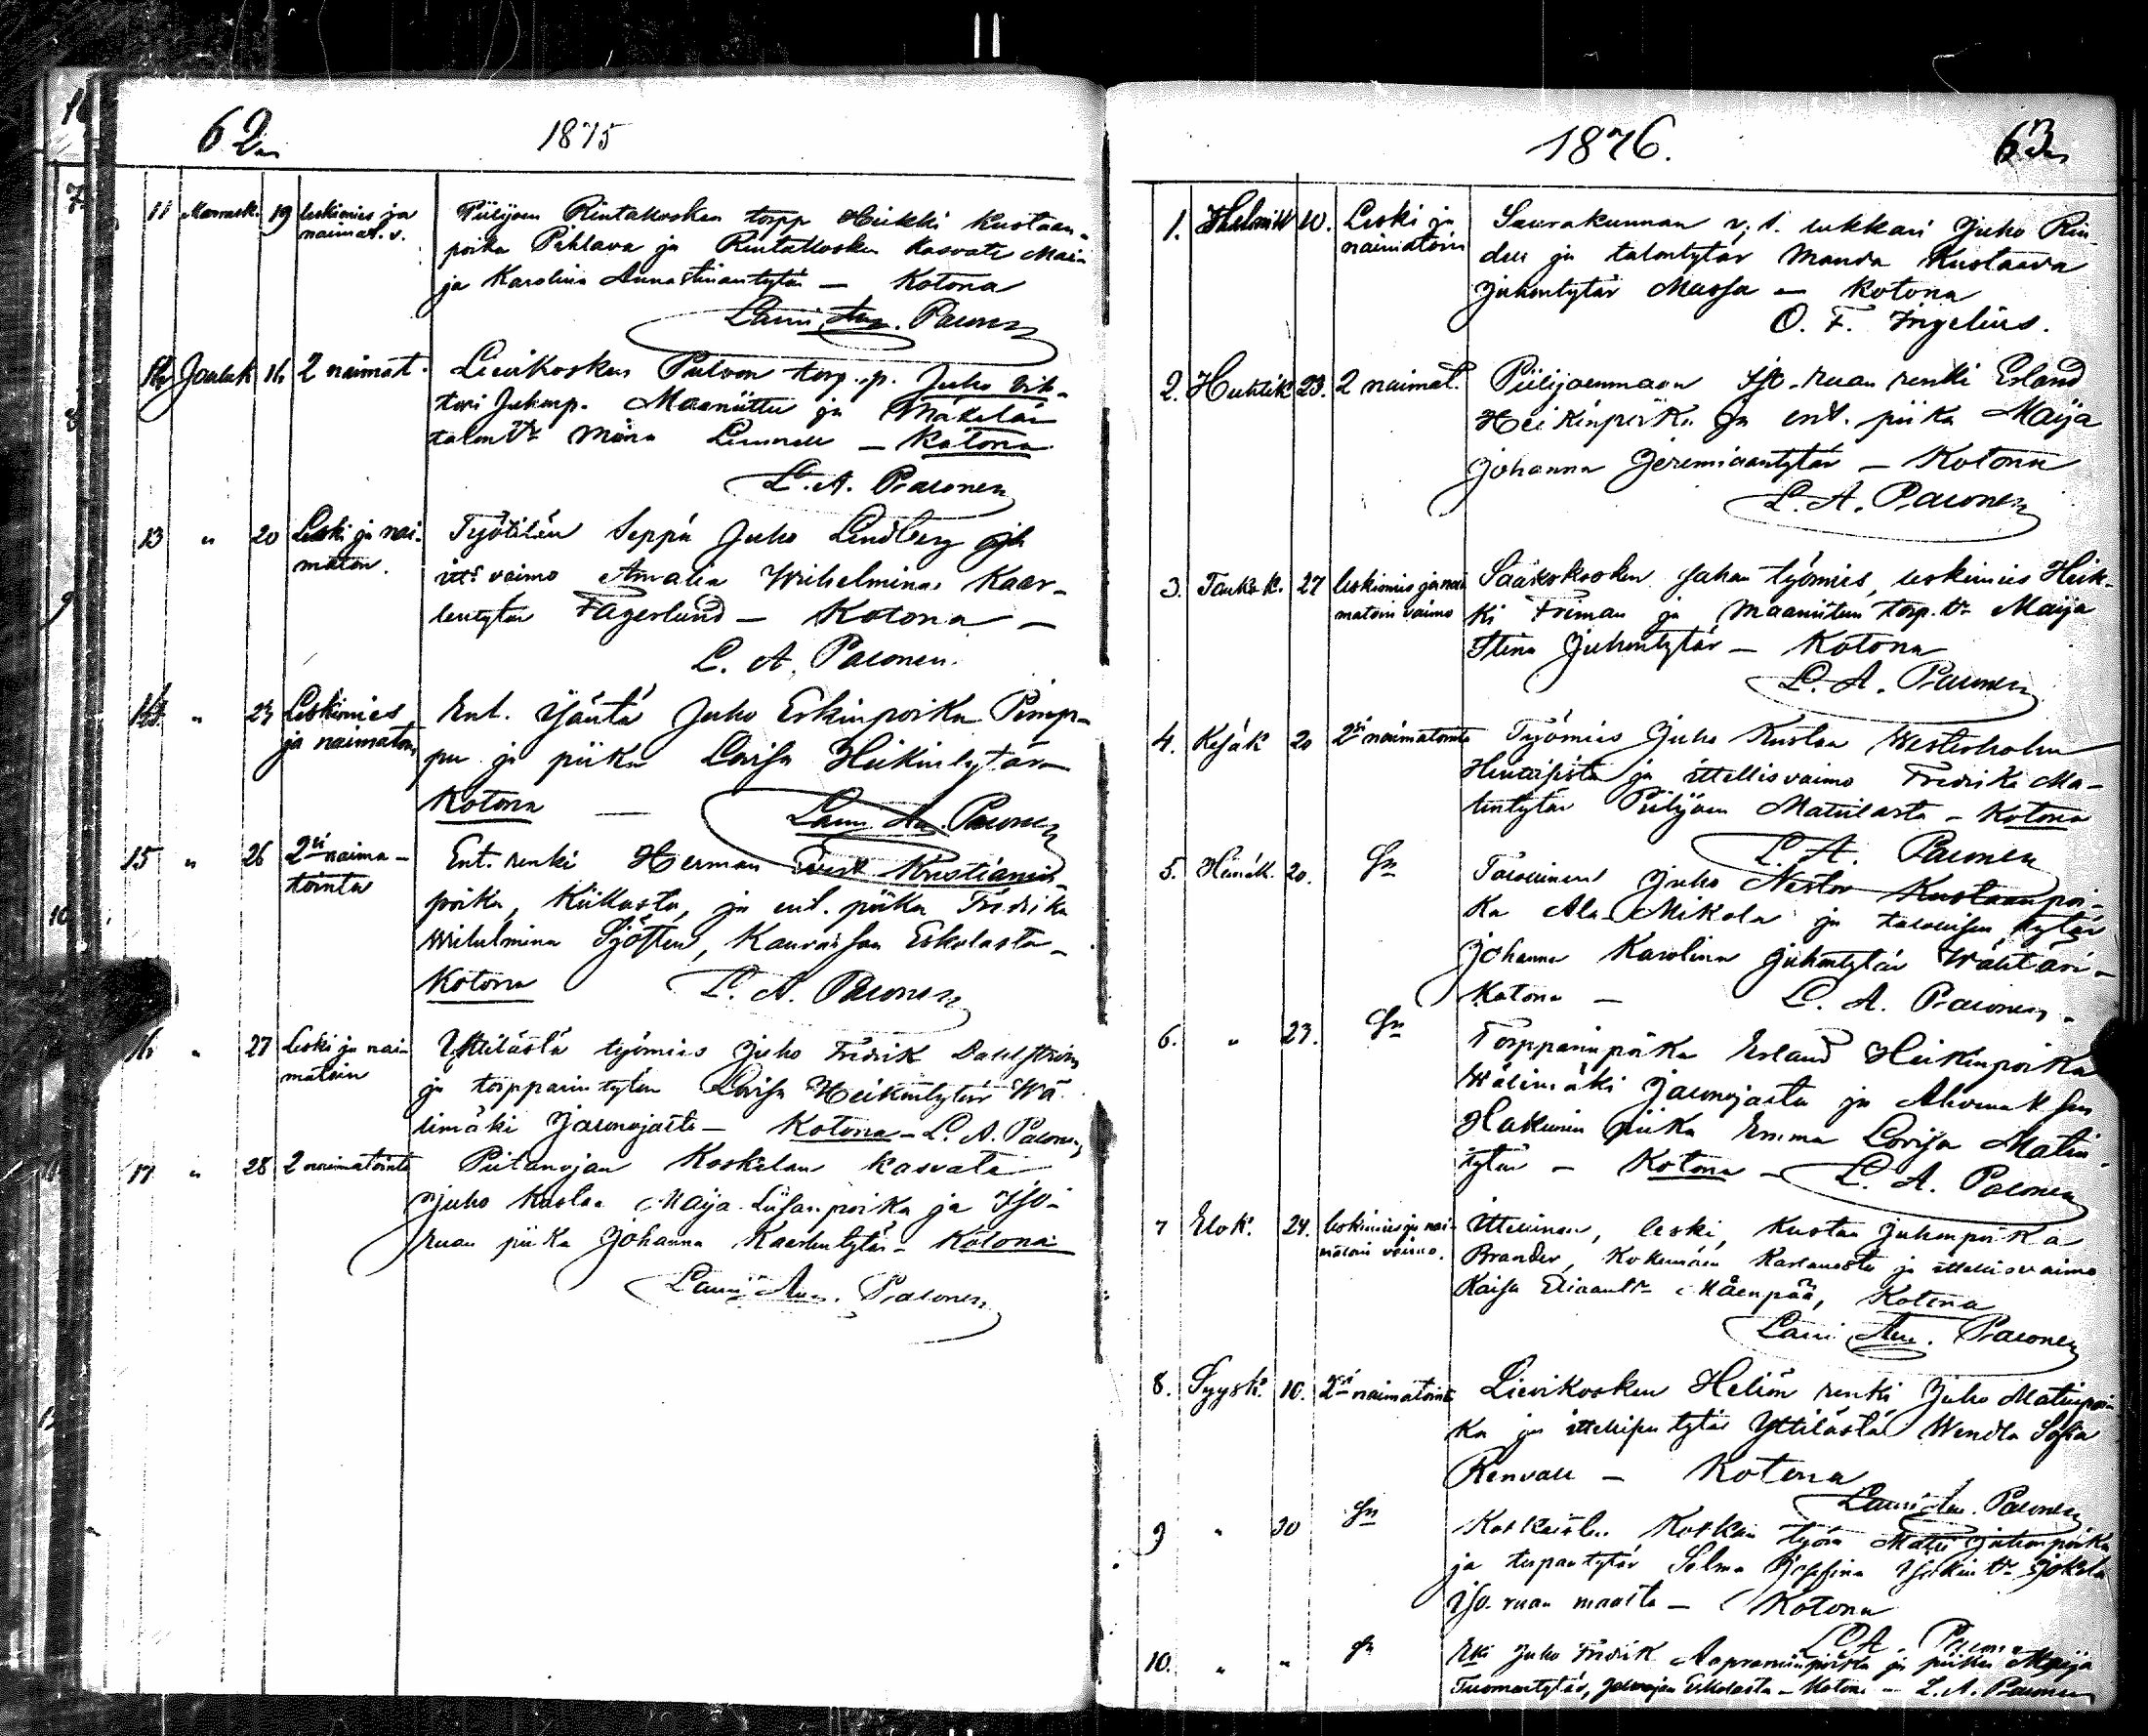 62
1875
11 Marrask. 19 leskimies ja Piilijoen Rintakosken torpp Heikki Kustaan-
naimat. v. poika Pihlava ja Rintakosken kasvatt Maia
ja Karolina Annastinantytär — Kotona
Lauri Aug. Paeonen
Jouluk 16 2 naimat. Lievikosken torp. p. Juho Vih-
tori Juhonp. Maanittu ja Mäkelän
talon tr Miina — Kotona
L. A. Paeonen
13 " 20 Leski ja nai- Työtilän Seppä Juho Lindberg ja
maton. itts vaimo Amalia Wilhelmina Kaar-
lentytär Fagerlund — Kotona —
L. A. Paeonen.
" Leskimies Ent. Isäntä Juho Erkinpoika Pimp-
ja naimaton pu ja piika Lovisa Heikintytär
Kotona — Lauri Au. Paeonen
15 " 26 2si naima- Ent. renki Herman Kristianin-
tointa poika, Kiikasta, ja ent. piika Fredrika
Wilhelmina Sjösten, Eskolasta —
Kotona L. A. Paeonen
" 27 Leski ja nai- Yttilästä työmies Juho Fredrik
matoin ja torpparin tytär Lovisa Heikintytär Wä-
limäki Jaconojasta — Kotona — L. A. Paeonen
17 " 28 2 naimatointa Piitanojan Koskelan kasvatti
Juho Kustaa Maija-Liisanpoika ja Iso-
ruan piika Johanna Kaarlentytär — Kotona
Lauri Au. Paeonen
1876. 63
1. Helmik 10. Leski ja Seurakunnan v. t. lukkari Juho Rin-
naimatoin dell ja talontytär Manda Kustaava
Juhontytär Massa — Kotona
O. F. Ingelius.
2. Huhtik 23. 2 naimat. Piilijoenmaan Iso-ruan renki Erland
Heikinpoika ja ent. piika Maija
Johanna Jeremiaantytär — Kotona
L. A. Paeonen
3. Toukok. 27 leskimies ja nai- Sääkskosken sahan työmies, leskimies Heik-
matoin vaimo ki Friman ja Maaniitun torp. tr Maija
Stina Juhontytär — Kotona
L. A. Paeonen
4. Kesäk 20 2si naimatointa Työmies Juho Kustaa Westerholm
ja ittellisvaimo Fredrika Ma-
tintytär Piilijoen Matiilasta — Kotona
L. A. Paeonen
5. Heinäk. 20. Sn Taloinen Juho Nestor Kustaanpoi-
ka Ala-Mikola ja taloisen tytär
Johanna Karolina Juhontytär Wähtäri —
Kotona — L. A. Paeonen.
6. " 23. Sn Torpparinpoika Erland Heikinpoika
Wälimäki Jaconojasta ja
piika Emma Lovisa Matin-
tytär — Kotona — L. A. Paeonen
7 Elok. 24. leskimies ja nai- Ittellinen, leski, Kustaa Juhonpoika
matoin vaimo. Brander, Kokemäen ja ittellisvaimo
Kaisa Eliaantr Mäenpää, Kotona
Lauri Au. Paeonen
8. Syysk. 10. 2si naimatointa Lievikosken Heliön renki Juho Matinpoi-
ka ja ittellisen tytär Yttilästä Wendla Sofia
Renvall — Kotona
Lauri Au. Paeonen
9 " 30 Sn Kotkan työm Matti Juhonpoika
ja torpantytär Selma Josefina tr Jokela
Iso-ruan maalta — Kotona
L. A. Paeonen
10. " " Sn Rki Juho Fredrik Aapraminpoika ja piika Maija
Tuomantytär, Eskolasta — Kotona — L. A. Paeonen